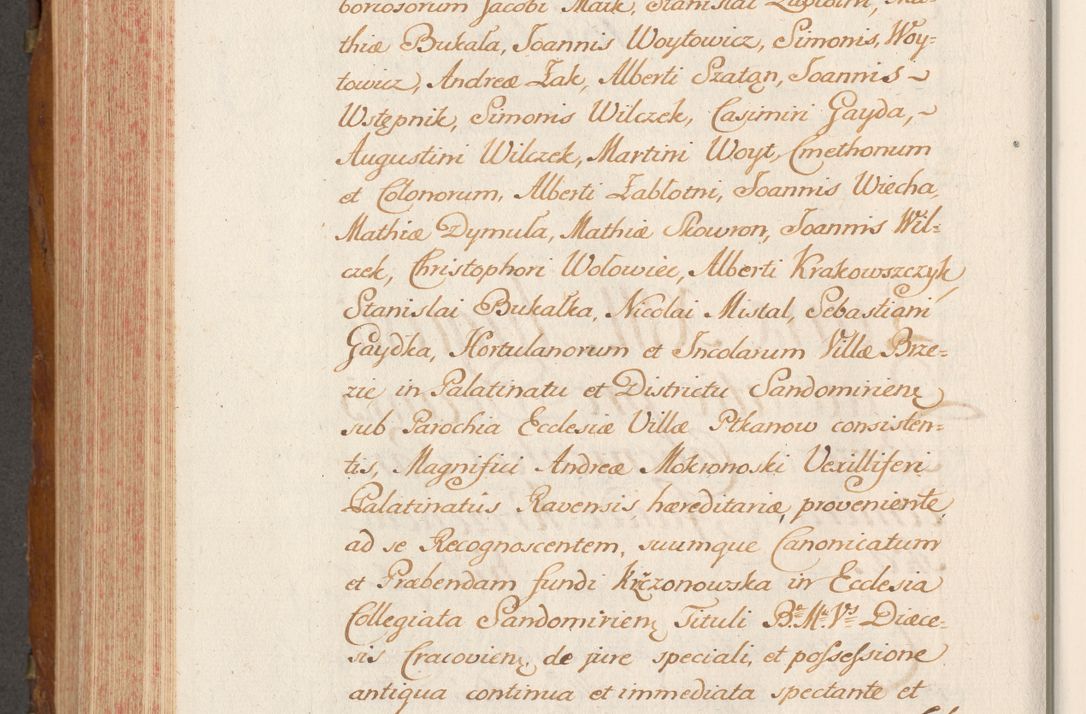 boriosorum Jacobi Maik, Stanislai Zabłotni, Ma-
thiæ Bukała, Joannis Woytowicz, Simonis, Woy-
towicz, Andreæ Zak, Alberti Szatan, Joannis ~
Wstępnik, Simonis Wilczek, Casimiri Gayda, ~
Augustini Wilczek, Martini Woyt, Cmethonum
et Colonorum, Alberti Zabłotni, Joannis Wiecha,
Mathiæ Dymuła, Mathiæ Skowron, Joannis Wil-
czek, Christophori Wołowiec, Alberti Krakowszczyk,
Stanislai Bukałka, Nicolai Mistal, Sebastiani
Gaydka, Hortulanorum et Incolarum Villæ Brze-
zie in Palatinatu et Districtu Sandomirien:
sub Parochia Ecclesiæ Villæ Ptkanow consisten-
tis, Magnifici Andreæ Mokronoski Vexilliferi
Palatinatûs Ravensis hæreditariæ, proveniente,
ad se Recognoscentem, suumque Canonicatum
et Præbendam fundi Krzczonowska in Ecclesia
Collegiata Sandomirien: Tituli B. M. Vs Diœce-
sis Cracovien: de jure speciali, et possessione
antiqua continua et immediata spectante et